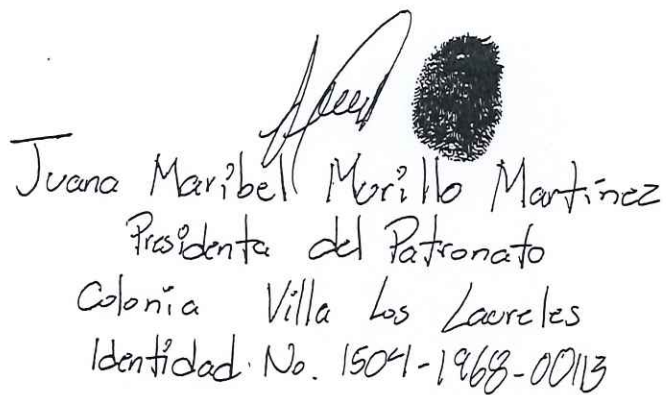 Juana Maribel Murillo Martínez
Presidenta del Patronato
Colonia Villa Los Laureles
Identidad. No. 1504-1968-00113